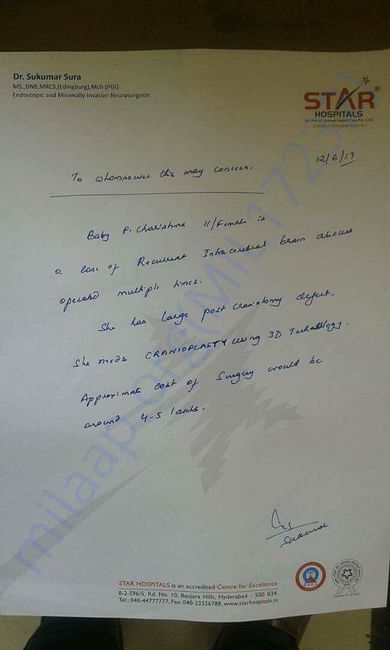 Dr. Sukumar Sura
MS.,DNB,MRCS,(Edingburg),Mch (PGI)
Endoscopic and Minimally Invasive Neurosurgeon
STAR
HOSPITALS
12/6/17
To whomsoever this may concern.
Baby P. Charishma 11/Female is
a case of Recurrent Intracerebral brain abscess
operated multiple times.
She has large post craniotomy defect.
She needs CRANIOPLASTY using 3D Technology.
Approximate cost of Surgery would be
around 4-5 lakhs.
Sukumar
STAR HOSPITALS is an accredited Centre for Excellence
8-2-596/5, Rd. No. 10, Banjara Hills, Hyderabad - 500 034.
Tel: 040-44777777, Fax: 040-23356788, www.starhospitals.in